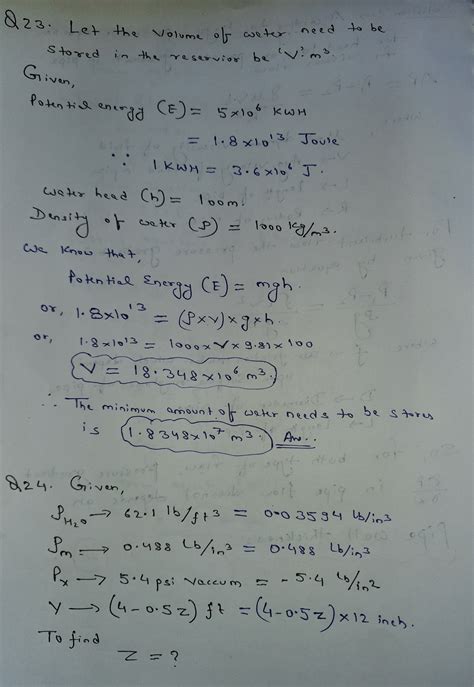 Q23. Let the volume of water need to be
stored in the reservior be 'V' m³
Given,
Potential energy (E) = 5×10⁶ KWH
= 1.8×10¹³ Joule
∵ 1KWH = 3.6×10⁶ J.
water head (h) = 100m.
Density of water (ρ) = 1000 kg/m³.
We know that,
Potential Energy (E) = mgh.
or, 1.8×10¹³ = (ρ×V)×g×h.
or, 1.8×10¹³ = 1000×V×9.81×100
V = 18.348×10⁶ m³.
∴ The minimum amount of water needs to be stores
is 1.8348×10⁷ m³. Ans..
Q24. Given,
ρH₂O → 62.1 lb/ft³ = 0.03594 lb/in³
ρm → 0.488 lb/in³ = 0.488 lb/in³
Px → 5.4 psi vaccum = -5.4 lb/in²
Y → (4-0.5z) ft = (4-0.5z)×12 inch.
To find
Z = ?